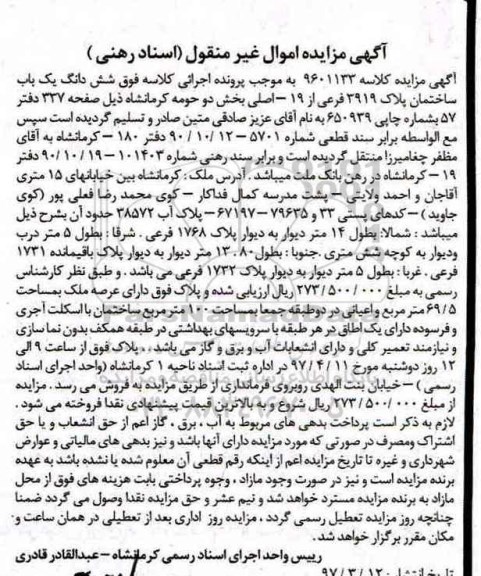 آگهی مزایده اموال غیر منقول (اسناد رهنی)
آگهی مزایده کلاسه ۹۶۰۱۱۳۳ به موجب پرونده اجرائی کلاسه فوق شش دانگ یک باب
ساختمان پلاک ۳۹۱۹ فرعی از ۱۹ – اصلی بخش دو حومه کرمانشاه ذیل صفحه ۳۳۷ دفتر
۵۷ بشماره چاپی ۶۵۰۹۳۹ به نام آقای عزیز صادقی متین صادر و تسلیم گردیده است سپس
مع الواسطه برابر سند قطعی شماره ۵۷۰۱ – ۹۰/۱۰/۱۲ دفتر ۱۸۰ – کرمانشاه به آقای
مظفر چغامیرزا منتقل گردیده است و برابر سند رهنی شماره ۱۰۱۴۰۳ – ۹۰/۱۰/۱۹ دفتر
۱۹ – کرمانشاه در رهن بانک ملت میباشد . آدرس ملک : کرمانشاه بین خیابانهای ۱۵ متری
آقاجان و احمد ولایتی – پشت مدرسه کمال فداکار – کوی محمد رضا فعلی پور (کوی
جاوید) – کدهای پستی ۳۳ و ۷۹۶۳۵ – ۶۷۱۹۷ – پلاک آب ۳۸۵۷۲ حدود آن بشرح ذیل
میباشد : شمالا: بطول ۱۴ متر دیوار به دیوار پلاک ۱۷۶۸ فرعی . شرقا : بطول ۵ متر درب
ودیوار به کوچه شش متری .جنوبا : بطول ۱۳.۸۰ متر دیوار به دیوار پلاک باقیمانده ۱۷۳۱
فرعی . غربا : بطول ۵ متر دیوار به دیوار پلاک ۱۷۳۲ فرعی می باشد . و طبق نظر کارشناس
رسمی به مبلغ ۲۷۳/۵۰۰/۰۰۰ ریال ارزیابی شده و پلاک فوق دارای عرصه ملک بمساحت
۶۹/۵ متر مربع و اعیانی در دوطبقه جمعا بمساحت ۱۰۰ متر مربع ساختمان با اسکلت آجری
و فرسوده دارای یک اطاق در هر طبقه با سرویسهای بهداشتی در طبقه همکف بدون نما سازی
و نیازمند تعمیر کلی و دارای انشعابات آب و برق و گاز می باشد . پلاک فوق از ساعت ۹ الی
۱۲ روز دوشنبه مورخ ۹۷/۴/۱۱ در اداره ثبت اسناد ناحیه ۱ کرمانشاه (واحد اجرای اسناد
رسمی) – خیابان بنت الهدی روبروی فرمانداری از طریق مزایده به فروش می رسد . مزایده
از مبلغ ۲۷۳/۵۰۰/۰۰۰ ریال شروع و به بالاترین قیمت پیشنهادی نقدا فروخته می شود .
لازم به ذکر است پرداخت بدهی های مربوط به آب ، برق ، گاز اعم از حق انشعاب و یا حق
اشتراک ومصرف در صورتی که مورد مزایده دارای آنها باشد و نیز بدهی های مالیاتی و عوارض
شهرداری و غیره تا تاریخ مزایده اعم از اینکه رقم قطعی آن معلوم شده یا نشده باشد به عهده
برنده مزایده است و نیز در صورت وجود مازاد ، وجوه پرداختی بابت هزینه های فوق از محل
مازاد به برنده مزایده مسترد خواهد شد و نیم عشر و حق مزایده نقدا وصول می گردد ضمنا
چنانچه روز مزایده تعطیل رسمی گردد ، مزایده روز اداری بعد از تعطیلی در همان ساعت و
مکان مقرر برگزار خواهد شد.
رییس واحد اجرای اسناد رسمی کرمانشاه – عبدالقادر قادری
تاریخ انتشار: ۹۷/۳/۱۲